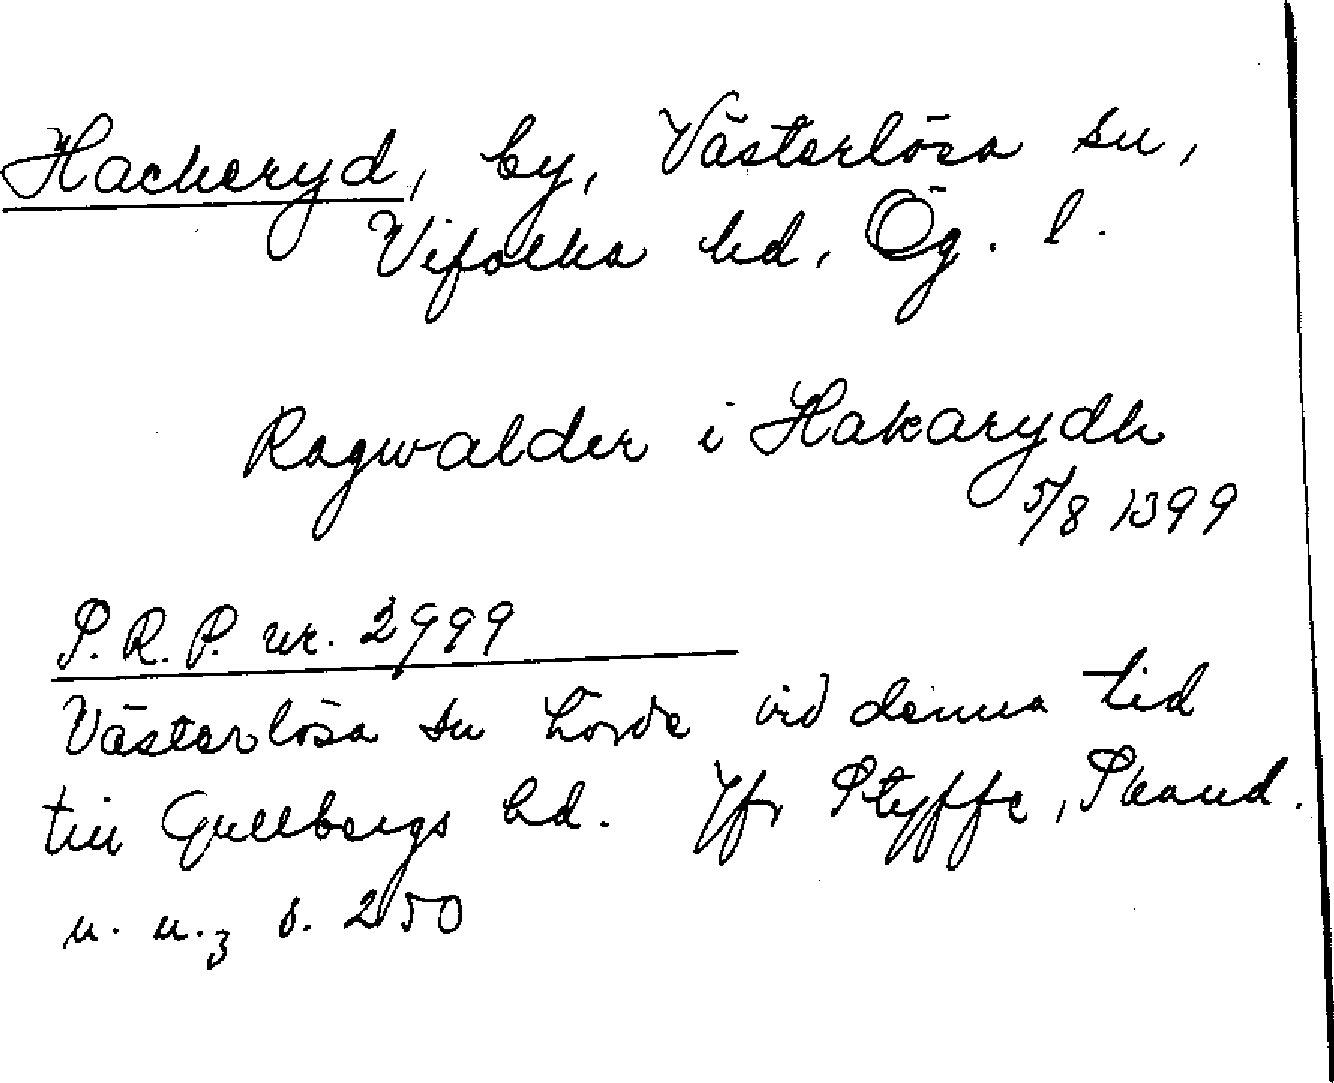 Hackeryd, by, Västerlösa sn,
Vifolka hd, Ög. l.
Ragwalder i Hakarydh
5/8 1399
P.R.P. nr. 2999
Västerlösa sn hörde vid denna tid
till Gullbergs hd. Jfr Styffe, Skand.
u. u.3 s. 250